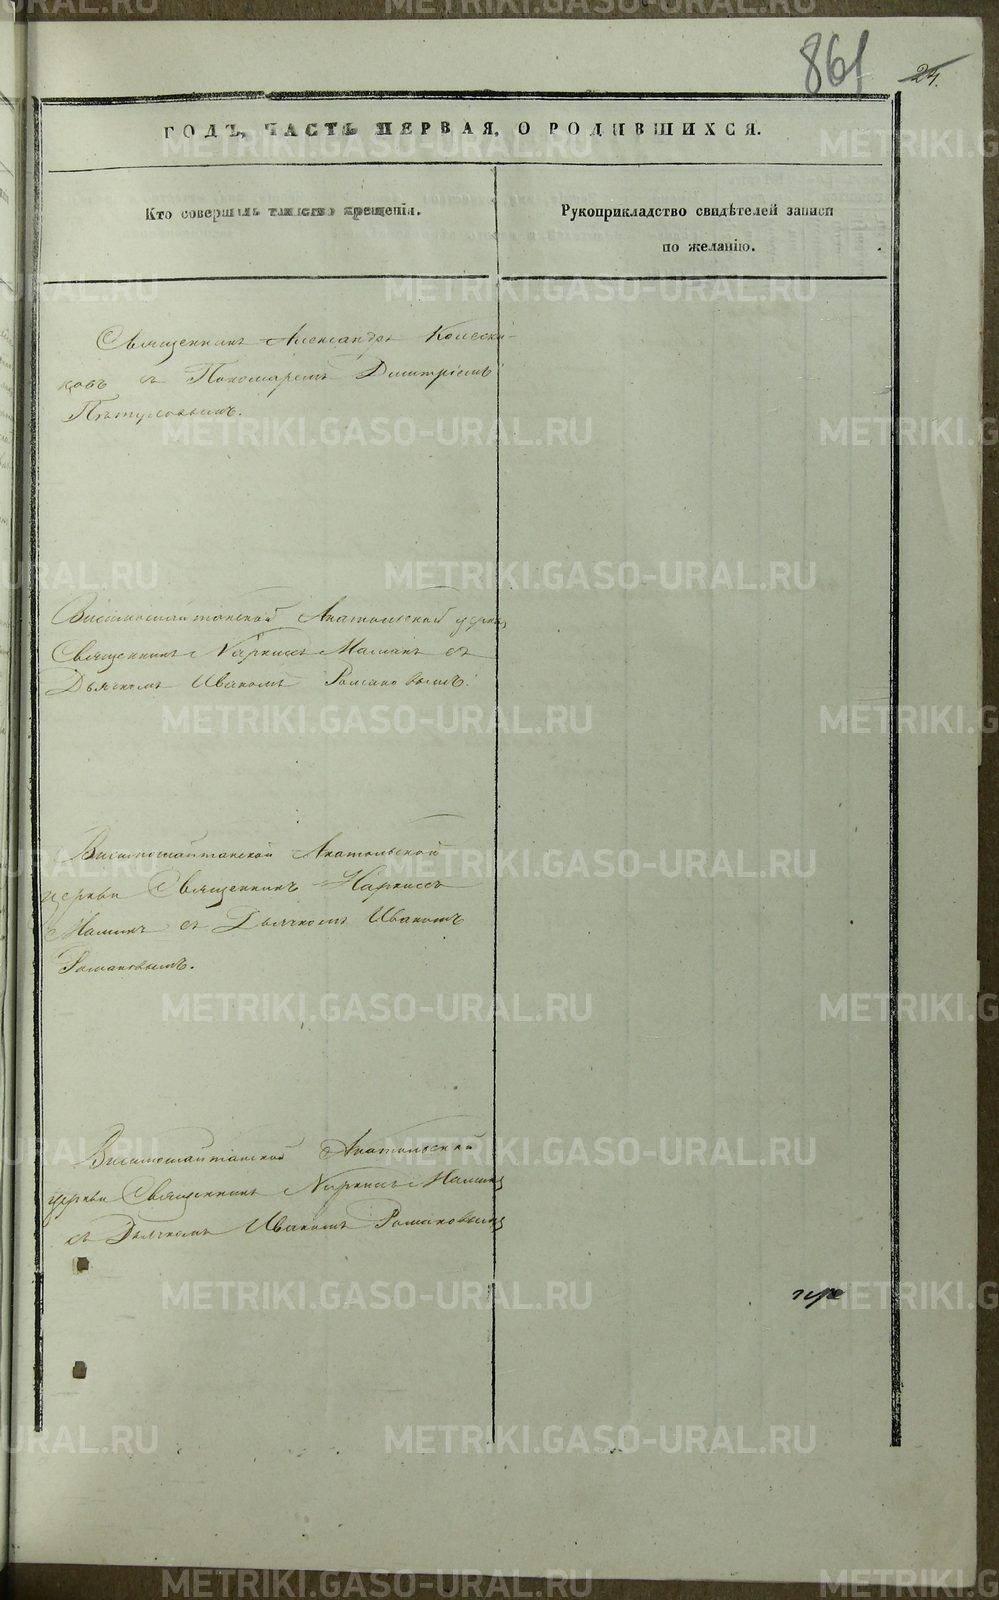 861
24.
ГОДЪ, ЧАСТЬ ПЕРВАЯ, О РОДИВШИХСЯ.
Кто совершалъ таинство крещенія.
Рукоприкладство свидѣтелей записи
по желанію.
Священникъ Александръ Колесни-
ковъ съ Пономаремъ Димитріемъ
Пѣтуховымъ.
Висимошайтанской Анатольской церкви
Священникъ Наркиссъ Маминъ съ
Дьячкомъ Иваномъ Романовымъ.
Висимошайтанской Анатольской
церкви Священникъ Наркиссъ
Маминъ съ Дьячкомъ Иваномъ
Романовымъ.
Висимошайтанской Анатольской
церкви Священникъ Наркиссъ Маминъ
съ Дьячкомъ Иваномъ Романовымъ
METRIKI.GASO-URAL.RU